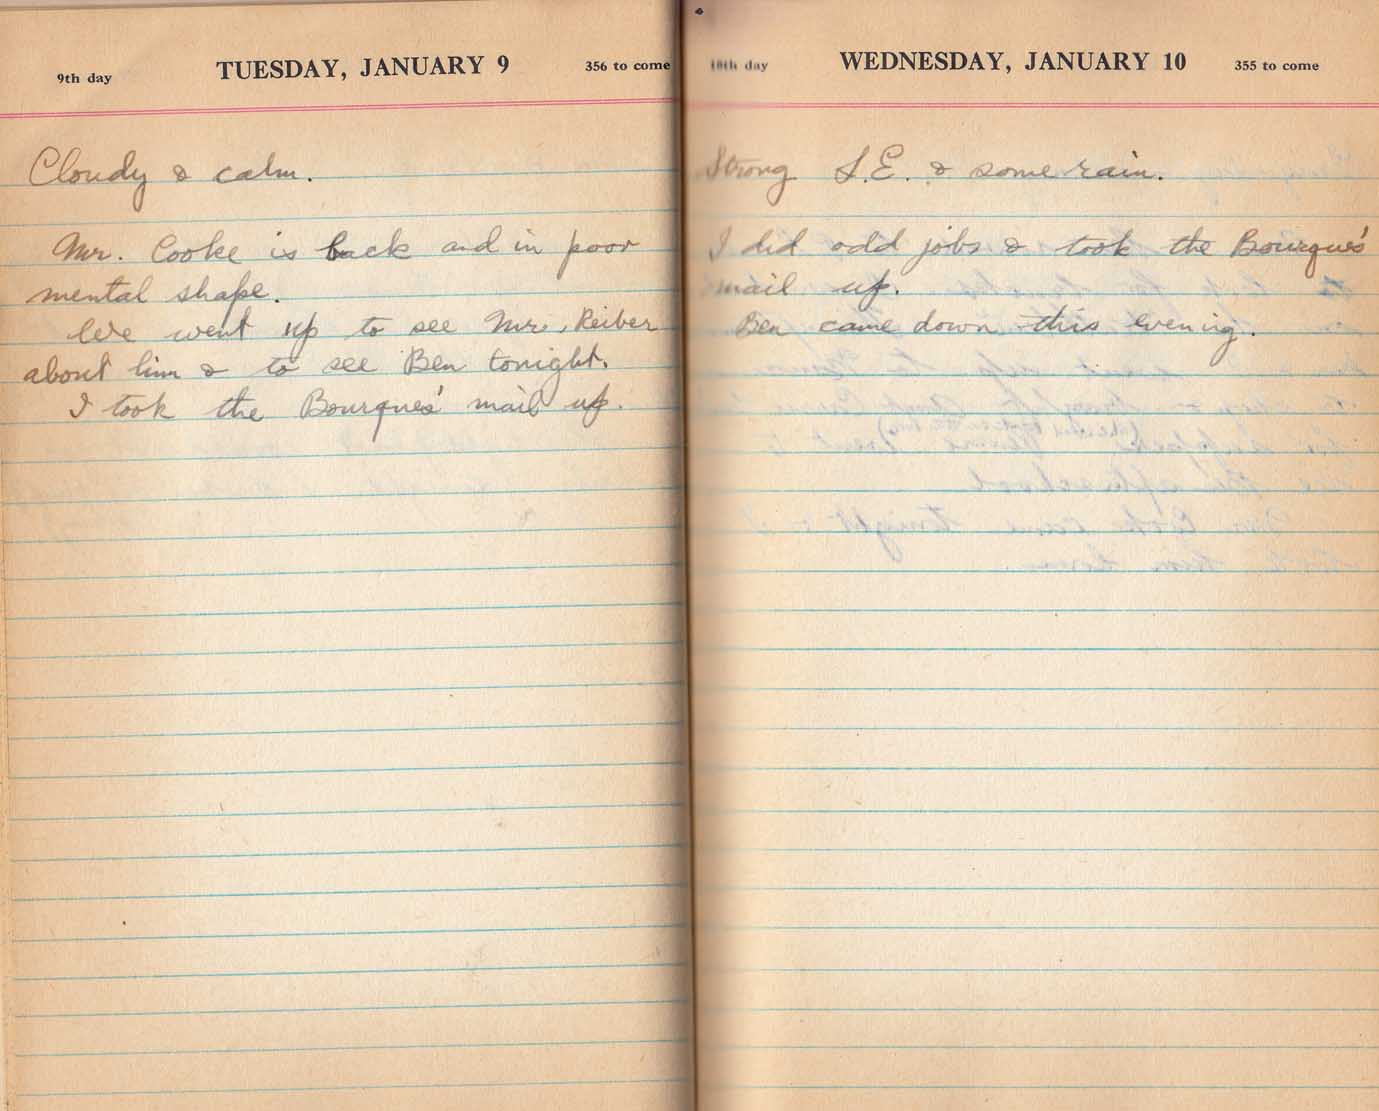 9th day TUESDAY, JANUARY 9 356 to come
Cloudy & calm.
Mr. Cooke is back and in poor
mental shape.
We went up to see Mr. Reiber
about him & to see Ben tonight.
I took the Bourques' mail up.
10th day WEDNESDAY, JANUARY 10 355 to come
Strong S.E. & some rain.
I did odd jobs & took the Bourques'
mail up.
Ben came down this evening.